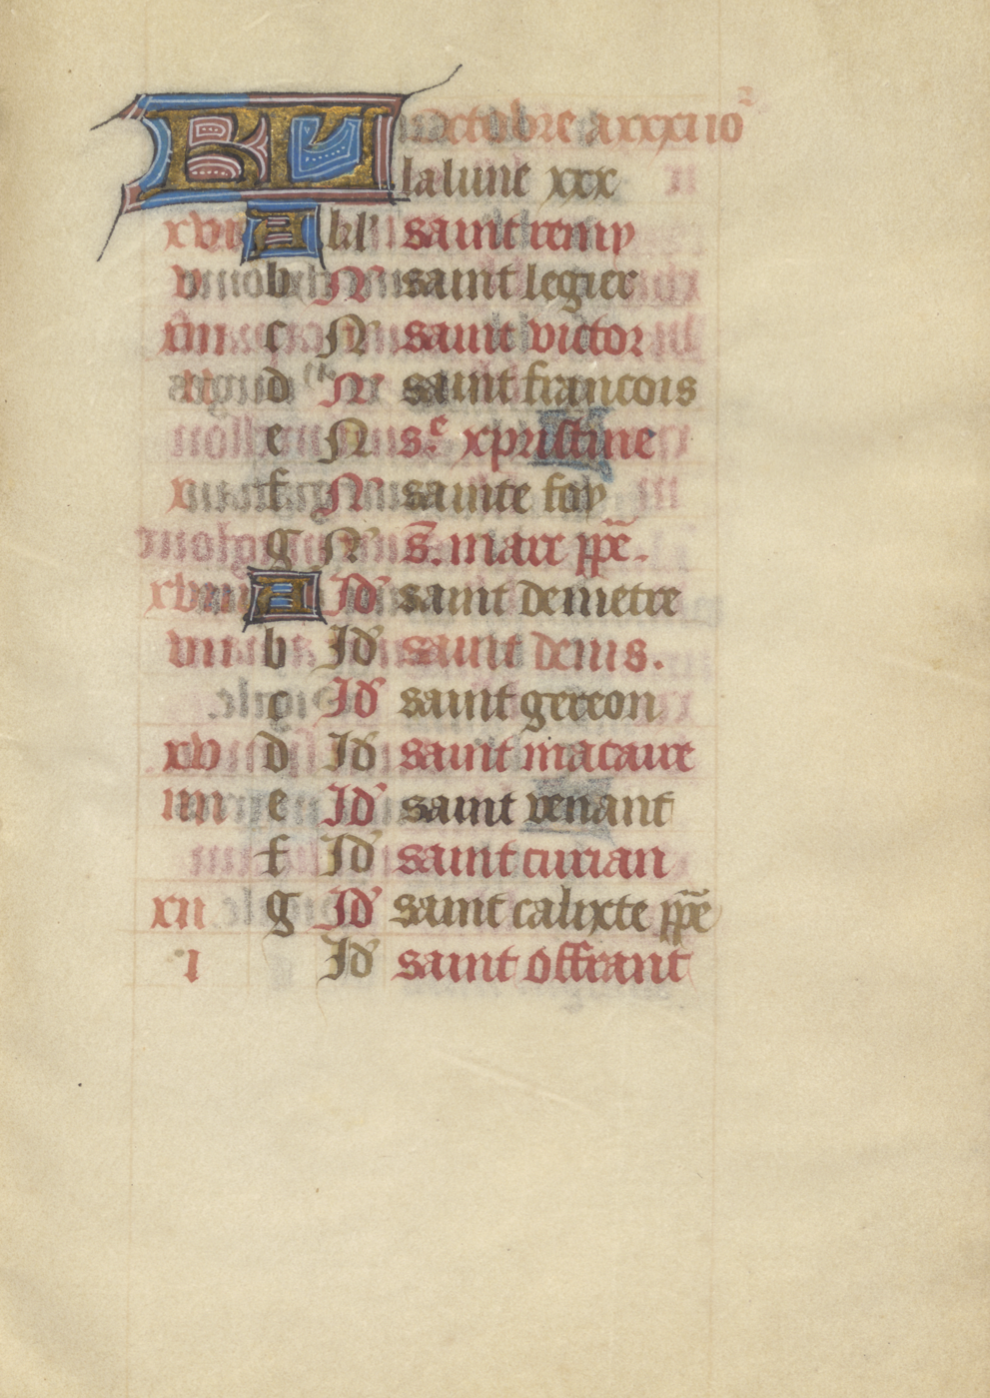 KL Octobre a xxxi io²
la lune xxx
xvi A kl' saint remy
v b N saint legier
xiii c N saint victor
ii d N saint francois
e N s.e xpristine
x f N sainte foy
g N S. marc ppe.
xviii A Id' saint demetre
vii b Id' saint denis.
c Id' saint gereon
xv d Id' saint macaire
iiii e Id' saint venant
f Id' saint curian
xii g Id' saint calixte ppe
i Id' saint offrant